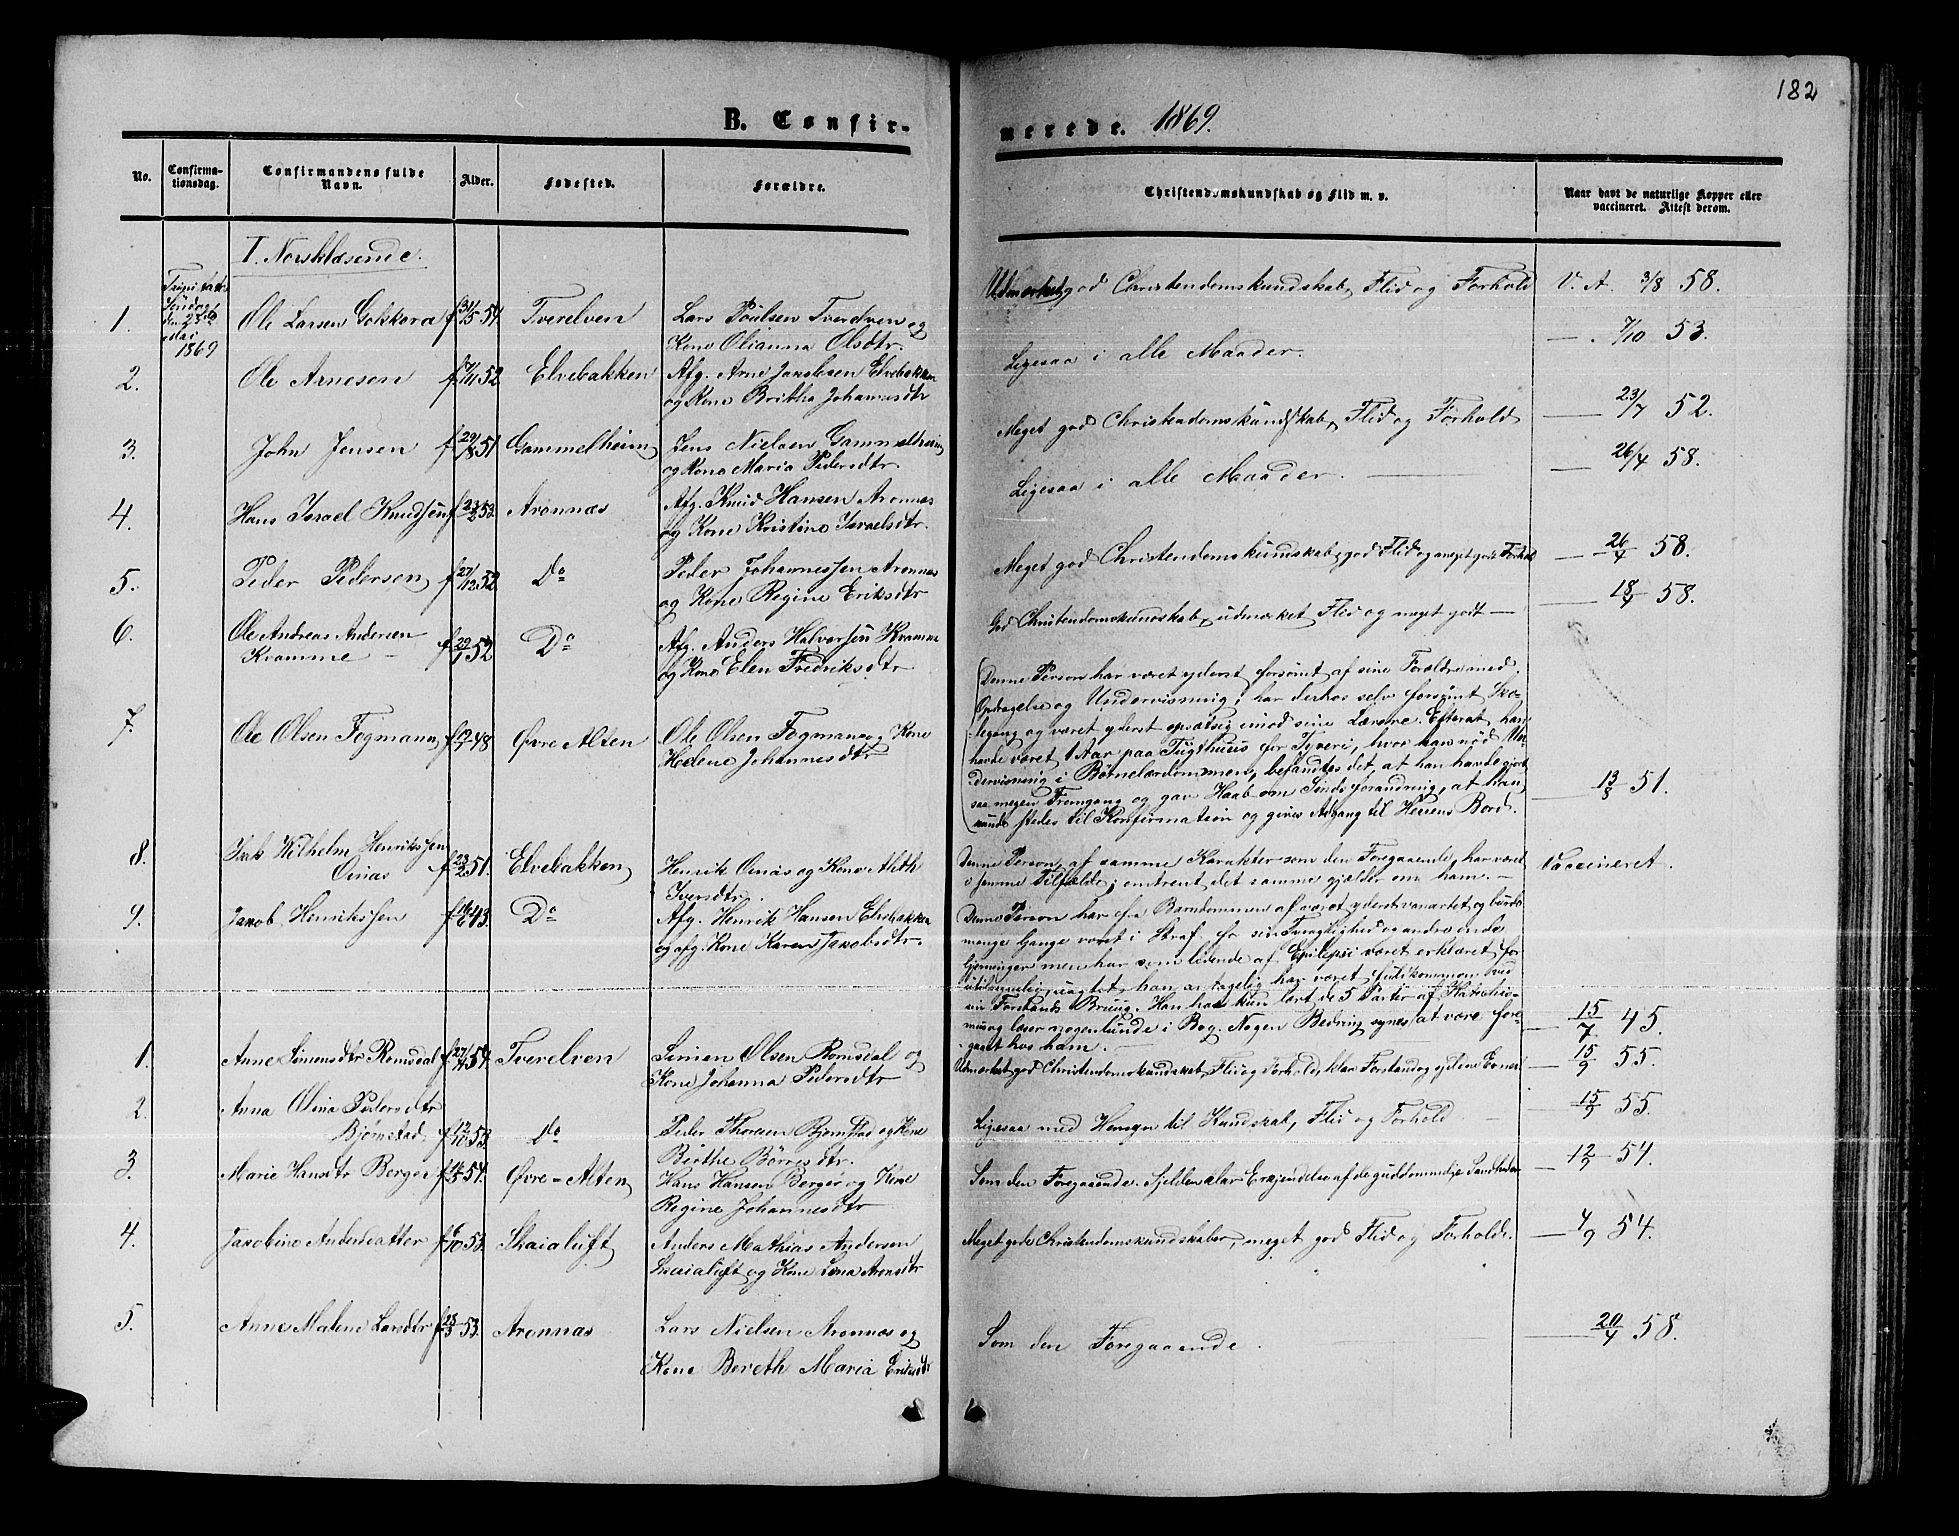 182
B. Confir-
merede. 1869.
No.
Confirma-
tionsdag.
Confirmandens fulde
Navn.
Alder.
Fødested.
Forældre.
Christendomskundskab og Flid m. v.
Naar havt de naturlige Kopper eller
vaccineret. Attest derom.
I. Norsklæsende.
Trinitatis
Søndag
den 23de
Mai
1869
1. Ole Larsen Gokkora f 31/5 54. Tverelven
Lars Poulsen Tverelven og
Kone Olianna Olsdtr.
Udmærket god Christendomskundskab, Flid og Forhold
V. A. 3/8 58.
2. Ole Arnesen 52. Elvebakken
Afg. Arne Jakobsen Elvebakken
og Kone Britha Johannesdtr
Ligesaa i alle Maader.
7/10 53.
3. John Jensen f 29/8 51 Gammelheim
Jens Nielsen Gammelheim
og Kone Maria Pedersdtr.
Meget god Christendomskundskab, Flid og Forhold
23/7 52.
4. Hans Israel Knudsen f 23/2 53. Aronnæs
Afg. Knud Hansen Aronnæs
og Kone Kristine Israelsdtr.
Ligesaa i alle Maader.
26/4 58.
5. Peder Pedersen f 27/12 52. Do
Peder Johannessen Aronnæs
og Kone Regine Eriksdtr
Meget god Christendomskundskab, god Flid og meget godt Forhold
26/4 58.
6. Ole Andreas Andersen
Kramme f 29/1 52 Do
Afg. Anders Halvorsen Kramme
og Kone Elen Fredriksdtr
God Christendomskundskab, udmærket Flid og meget godt —
18/4 58.
7. Ole Olsen Fogmann 48 Øvre Alten
Ole Olsen Fogman og Kone
Helene Johannesdtr
Denne Person har været yderst forsømt af sine Forældre med
Opdragelse og Undervisning, har derhos selv forsømt Sko-
legang og været yderst opsætsig imod sine Lærere. Efterat han
havde været 1 Aar paa Tugthuus for Tyveri, hvor han nød Un-
dervisning i Børnelærdommen, befandtes det, at han havde gjort
saa megen Fremgang og gav Haab om Sindsforandring, at han
kunde stedes til Konfirmation og gives Adgang til Herrens Bord.
13/8 51.
8. Isak Wilhelm Henriksen
Oinas f 23/2 51. Elvebakken
Henrik Oinas og Kone
Iversdtr.
Denne Person, af samme Karakter som den Foregaaende, har været
i samme Tilfælde; omtrent det samme gjælder om ham. —
Vaccineret.
9. Jakob Henriksen 43. Do
Afg. Henrik Hansen Elvebakken
og afg. Kone Karen Jakobsdtr.
Denne Person har fra Barndommen af været yderst vanartet og
mange Gange været i Straf for sin og andre onde
Gjerninger men har som lidende af Epilepsi været erklæret for
utilregnelig, uagtet han har været fuldkommen ved
sin Forstands Brug. Han har kun lært de 5 Parter af Katechis-
mus og læser nogenlunde i Bog. Nogen Bedring synes at være fore-
gaaet hos ham.
15/7 45.
1. Anne Simensdtr Romsdal 54. Tverelven
Simen Olsen Romsdal og
Kone Johanna Pedersdtr
Udmærket god Christendomskundskab, Flid og Forhold, klar Forstand og sjeldne Evner.
15/9 55.
2. Anna Olina Pedersdtr
Bjørnstad f 12/10 53. Do
Peder Thoresen Bjørnstad og Kone
Birthe Børresdtr.
Ligesaa med Hensyn til Kundskab, Flid og Forhold
15/9 55.
3. Marie Hansdtr Berger 54. Øvre-Alten
Hans Hansen Berger og Kone
Regine Johannesdtr
Som den Foregaaende. Sjelden klar Erkjendelse af de guddommelige Sandheder
12/9 54.
4. Jakobine Andersdatter f 6/10 53. Skaialuft
Anders Mathias Andersen
Skaialuft og Kone Lena Aronsdtr
Meget gode Christendomskundskaber, meget god Flid og Forhold.
4/9 54.
5. Anne Malene Larsdtr 53. Aronnæs
Lars Nielsen Aronnæs og
Kone Bereth Maria Eriksdtr
Som den Foregaaende.
20/4 58.